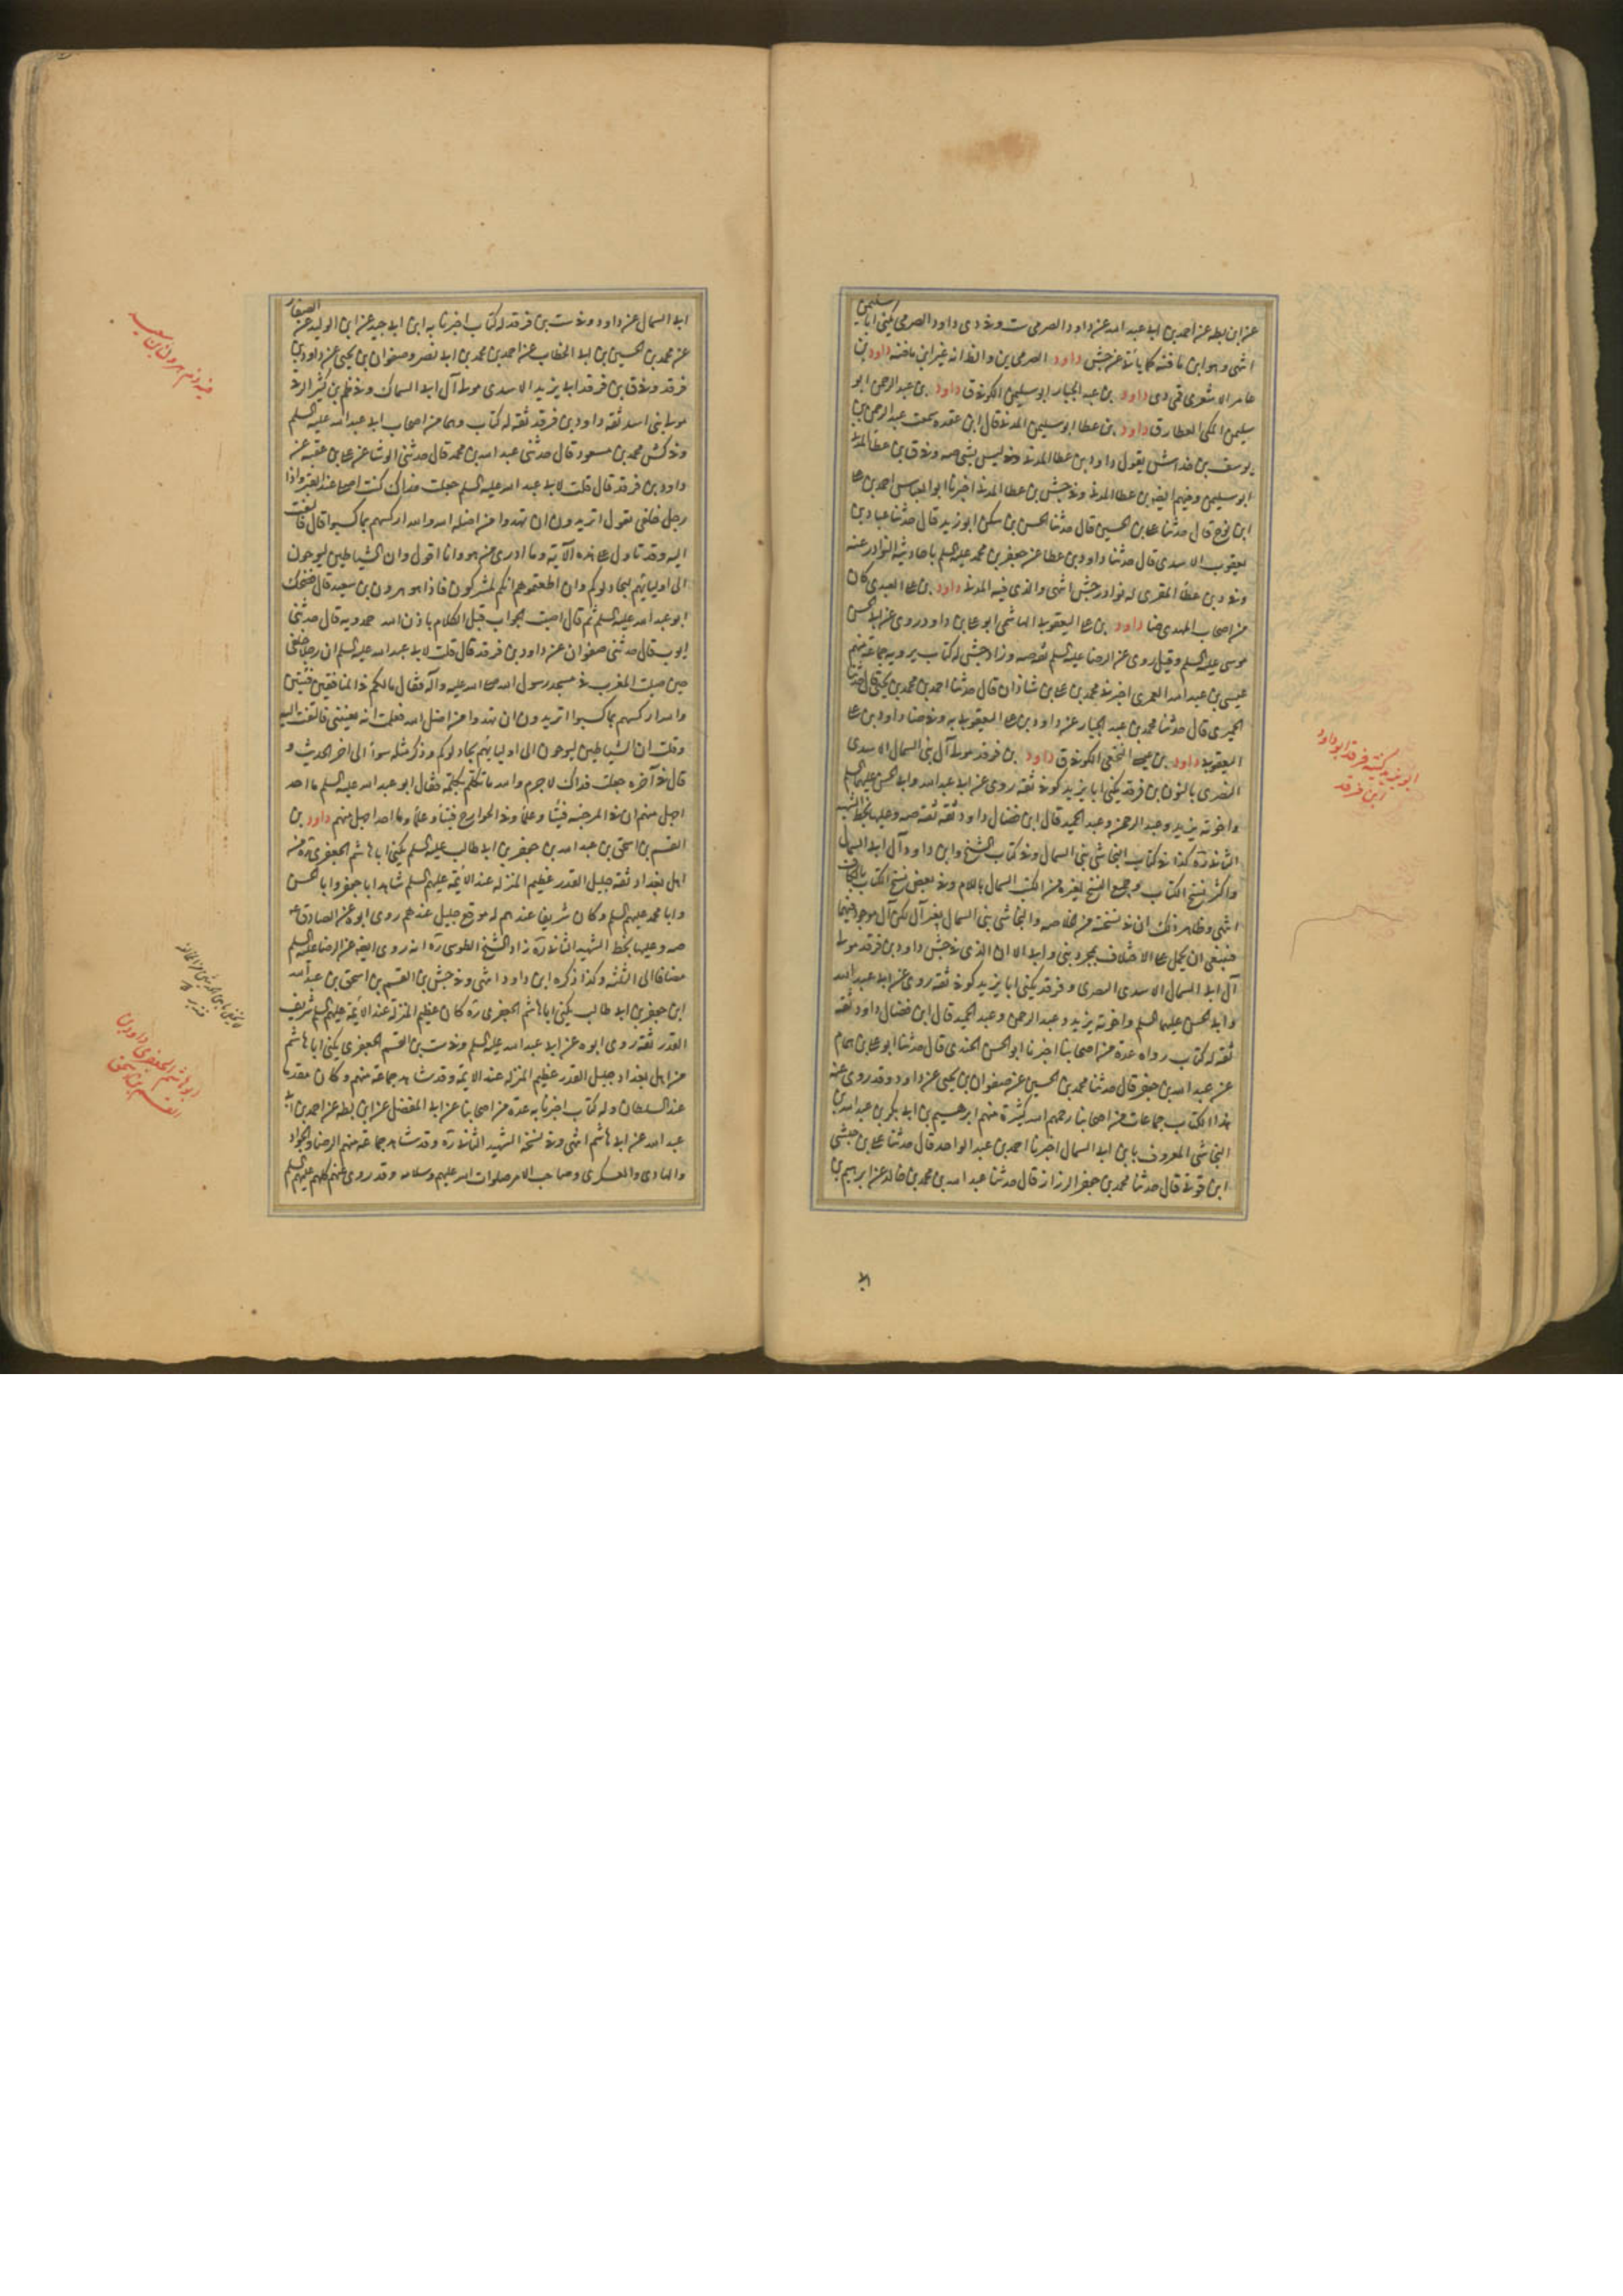 عن ابن بطه عن احمد بن ابى عبد الله عن داود الصرمى ست وفى دى داود الصرمى يكنى ابا سليمن
انتهى وهو ابن مافنه كما ياتى عن جش داود الصرمى ين والظ انه غير ابن مافنه داود بن
عامر الاشعرى قمى دى داود بن عبد الجبار ابو سليمن الكوفى ق داود بن عبد الرحمن ابو
سليمن المكى العطار ق داود بن عطا ابو سليمن المدنى قال ابن عقده سمعت عبد الرحمن بن
يوسف بن خداش يقول داود ابن عطا المدنى ليس بشى صه وفى ق بن عطا المدنى
ابو سليمن وفيهم ايضا بن عطا المدنى وفى جش بن عطا المدنى اخبرنا ابو العباس احمد بن على
ابن نوح قال حدثنا على بن الحسين قال حدثنا الحسن بن سكن ابو زيد قال حدثنا عباد بن
يعقوب الاسدى قال حدثنا داود بن عطا عن جعفر بن محمد عليه السلم باحاديثه النوادر عنه
وفى د بن عطا المقرى له نوادر جش انتهى والذى فيه المدنى داود بن على العبدى كان
من اصحاب المهدى ضا داود بن على اليعقوبى الهاشمى ابو على بن داود روى عن ابى الحسن
موسى عليه السلم وقيل روى عن الرضا عليه السلم ثقه صه وزاد جش له كتاب يرويه جماعة منهم
عيسى بن عبد الله العمرى اخبرنى محمد بن على بن شاذان قال حدثنا احمد بن محمد بن يحيى قال حدثنا
الحميرى قال حدثنا محمد بن عبد الجبار عن داود بن على اليعقوبى به وفى ضا داود بن على
اليعقوبى داود بن عيسى النخعى الكوفى ق داود بن فرقد مولى آل بنى السمال الاسدى
النصرى بالنون بن فرقد يكنى ابا يزيد كوفى ثقة روى عن ابى عبد الله وابى الحسن عليهما السلم
واخوته يزيد وعبد الرحمن وعبد الحميد قال ابن فضال داود ثقة ثقه صه وعليها بخط الشهيد
الثانى ره كذا فى كتاب النجاشى بنى السمال وفى كتاب الشيخ وابن داود آل ابى السمال
واكثر نسخ الكتاب وجميع النسخ لغيره من الكتب السمال باللام وفى بعض نسخ الكتاب بالكاف
انتهى وظاهر ذلك ان فى نسخته من الخلاصه والنجاشى بنى السمال بغير آل لكن آل موجود فيهما
فينبغى ان يحمل على الاختلاف بمجرد بنى وابى الا ان الذى فى جش داود بن فرقد مولى
آل ابى السمال الاسدى النصرى وفرقد يكنى ابا يزيد كوفى ثقه روى عن ابى عبد الله
وابى الحسن عليهما السلم واخوته يزيد وعبد الرحمن وعبد الحميد قال ابن فضال داود ثقه
ثقه له كتاب رواه عدة من اصحابنا اخبرنا ابو الحسن الجندى قال حدثنا ابو على بن همام
عن عبد الله بن جعفر قال حدثنا محمد بن الحسين عن صفوان بن يحيى عن داود وقد روى عنه
هذا الكتاب جماعات من اصحابنا رحمهم الله كثيرة منهم ابرهيم بن ابى بكر بن عبد الله بن
النجاشى المعروف بابن ابى السمال اخبرنا احمد بن عبد الواحد قال حدثنا على بن حبشى
ابن قونى قال حدثنا محمد بن جعفر الرزاز قال حدثنا عبد الله بن محمد بن خالد عن ابرهيم بن
ابى
ابو يزيد كنيته فرقد ابو داود
ابن فرقد
ابى السمال عن داود وفى ست بن فرقد له كتاب اخبرنا به ابن ابى جيد عن ابن الوليد عن الصفار
عن محمد بن الحسين بن ابى الخطاب عن احمد بن محمد بن ابى نصر وصفوان بن يحيى عن داود بن
فرقد وفى ق بن فرقد ابى يزيد الاسدى مولى آل ابى السماك وفى ظم بن كثير الرقى
مولى بنى اسد ثقه داود بن فرقد ثقه له كتاب وهما من اصحاب ابى عبد الله عليه السلم
وفى كش محمد بن مسعود قال حدثنى عبد الله بن محمد قال حدثنى الوشا عن على بن عقبه عن
داود بن فرقد قال قلت لابى عبد الله عليه السلم جعلت فداك كنت اصلى عند القبر واذا
رجل خلفى يقول اتريدون ان تهدوا من اضل الله والله اركسهم بما كسبوا قال فالتفت
اليه وقد تاول على هذه الآية وما ادرى من هو وانا اقول وان الشياطين ليوحون
الى اوليائهم ليجادلوكم وان اطعتموهم انكم لمشركون فاذا هو هرون بن سعيد قال فضحك
ابو عبد الله عليه السلم ثم قال اصبت الجواب قبل الكلام باذن الله حمدويه قال حدثنى
ايوب قال حدثنى صفوان عن داود بن فرقد قال قلت لابى عبد الله عليه السلم ان رجلا خلفى
حين صليت المغرب فى مسجد رسول الله صلى الله عليه وآله فقال مالكم فى المنافقين فئتين
والله اركسهم بما كسبوا اتريدون ان تهدوا من اضل الله فعلمت انه يعنينى فالتفت اليه
وقلت ان الشياطين ليوحون الى اوليائهم ليجادلوكم وذكر مثله سواء الى اخر الحديث و
قال فى آخره جعلت فداك لا جرم والله ما تكلم بكلمة فقال ابو عبد الله عليه السلم ما احد
اجهل منهم ان فى المرجئه فتيا وعلما وفى الخوارج فتيا وعلما وما احد اجهل منهم داود بن
القسم بن اسحق بن عبد الله بن جعفر بن ابى طالب عليه السلم يكنى ابا هاشم الجعفرى ره من
اهل بغداد ثقه جليل القدر عظيم المنزله عند الائمة عليهم السلم شاهد ابا جعفر وابا الحسن
وابا محمد عليهم السلم وكان شريفا عندهم له موقع جليل عندهم روى ابوه عن الصادق ع
صه وعليها بخط الشهيد الثانى ره زاد الشيخ الطوسى ره انه روى ايضا عن الرضا عليه السلم
مضافا الى الثلثه وكذا ذكره ابن داود انتهى وفى جش بن القسم بن اسحق بن عبد الله
ابن جعفر بن ابى طالب يكنى ابا هاشم الجعفرى ره كان عظيم المنزلة عند الائمة عليهم السلم شريف
القدر ثقه روى ابوه عن ابى عبد الله عليه السلم وفى ست بن القسم الجعفرى يكنى ابا هاشم
من اهل بغداد جليل القدر عظيم المنزله عند الائمة وقد شاهد جماعة منهم وكان مقدما
عند السلطان وله كتاب اخبرنا به عدة من اصحابنا عن ابى المفضل عن ابن بطه عن احمد بن ابى
عبد الله عن ابى هاشم انتهى وفى نسخة الشهيد الثانى ره وقد شاهد جماعة منهم الرضا والجواد
والهادى والعسكرى وصاحب الامر صلوات الله عليهم وسلامه وقد روى عنهم كلهم عليهم السلم
فيه ذم هرون بن سعيد
ابو هاشم الجعفرى داود بن
القسم بن اسحق